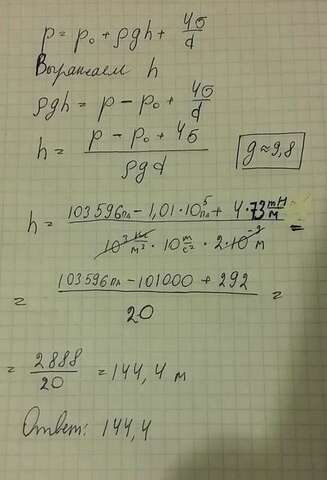 p = p₀ + ρgh + 4σ/d
Выражаем h
ρgh = p − p₀ + 4σ/d
h = (p − p₀ + 4σ)/(ρgd)
g ≈ 9,8
h = (103596Па − 1,01·10⁵Па + 4·73 mН/м)/(10³ кг/м³ · 10 м/с² · 2·10⁻³ м) =
= (103596Па − 101000 + 292)/20 =
= 2888/20 = 144,4 м
Ответ: 144,4